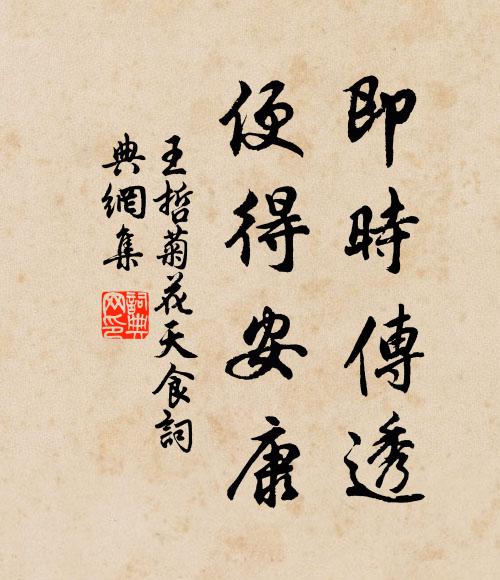 即時傳透
便得安康
王哲菊花天食詞
典網集
詞典网印